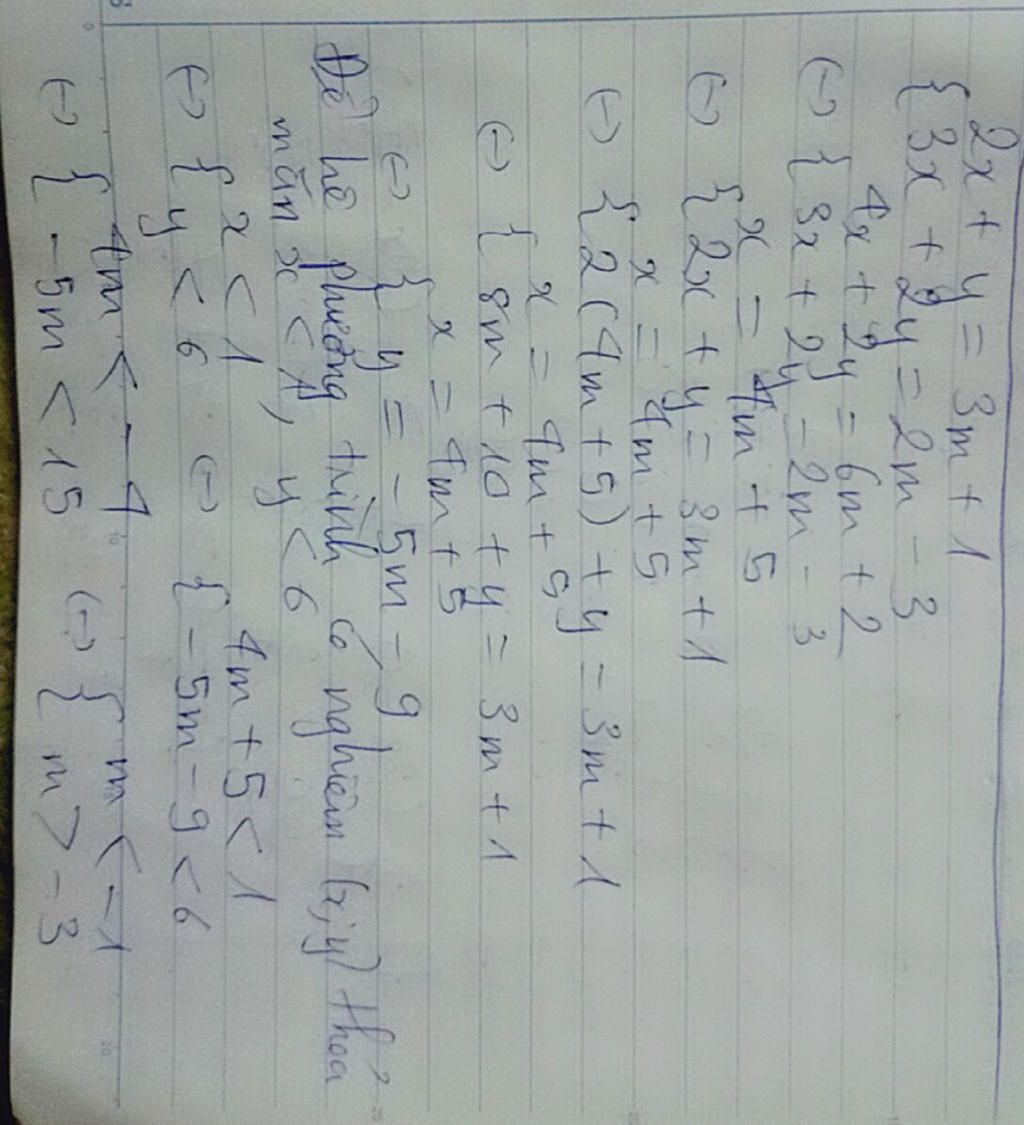 2x + y = 3m + 1
{ 3x + 2y = 2m - 3
4x + 2y = 6m + 2
(-) { 3x + 2y = 2m - 3
x = 4m + 5
(-) { 2x + y = 3m + 1
x = 4m + 5
(-) { 2(4m + 5) + y = 3m + 1
x = 4m + 5
(-) { 8m + 10 + y = 3m + 1
x = 4m + 5
(-) { y = - 5m - 9
Để hệ phương trình có nghiệm (x;y) thỏa
mãn x < 1, y < 6
(-) { x < 1 (-) { 4m + 5 < 1
y < 6 - 5m - 9 < 6
(-) { 4m < - 4 (-) { m < - 1
- 5m < 15 m > - 3